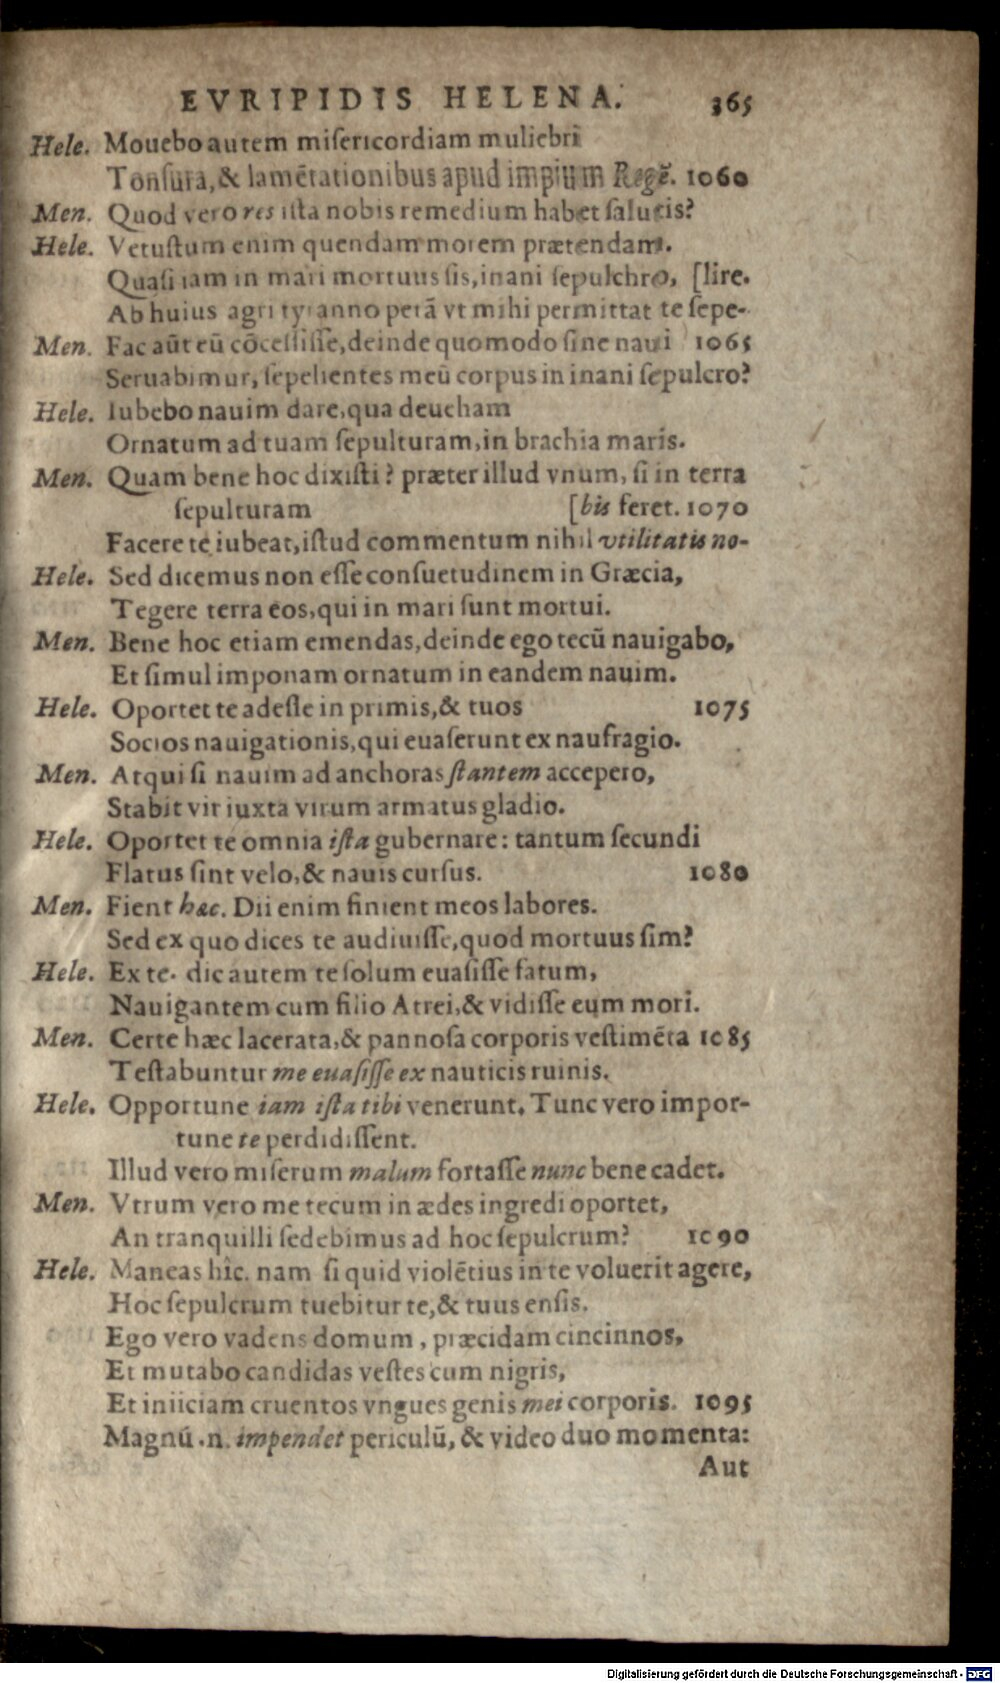 EVRIPIDIS HELENA. 365
Hele. Mouebo autem miſericordiam muliebri
Tonſura, & lamētationibus apud impium Regē. 1060
Men. Quod vero res iſta nobis remedium habet ſalutis?
Hele. Vetuſtum enim quendam morem prætendam.
Quaſi iam in mari mortuus ſis, inani ſepulchro, [lire.
Ab huius agri tyranno petā vt mihi permittat te ſepe-
Men. Fac aūt eū cōceſſiſſe, deinde quomodo ſine naui 1065
Seruabimur, ſepelientes meū corpus in inani ſepulcro?
Hele. Iubebo nauim dare, qua deueham
Ornatum ad tuam ſepulturam, in brachia maris.
Men. Quam bene hoc dixiſti? præter illud vnum, ſi in terra
ſepulturam [bis feret. 1070
Facere te iubeat, iſtud commentum nihil vtilitatis no-
Hele. Sed dicemus non eſſe conſuetudinem in Græcia,
Tegere terra eos, qui in mari ſunt mortui.
Men. Bene hoc etiam emendas, deinde ego tecū nauigabo,
Et ſimul imponam ornatum in eandem nauim.
Hele. Oportet te adeſſe in primis, & tuos 1075
Socios nauigationis, qui euaſerunt ex naufragio.
Men. Atqui ſi nauim ad anchoras ſtantem accepero,
Stabit vir iuxta virum armatus gladio.
Hele. Oportet te omnia iſta gubernare: tantum ſecundi
Flatus ſint velo, & nauis curſus. 1080
Men. Fient hæc. Dii enim finient meos labores.
Sed ex quo dices te audiuiſſe, quod mortuus ſim?
Hele. Ex te. dic autem te ſolum euaſiſſe fatum,
Nauigantem cum filio Atrei, & vidiſſe eum mori.
Men. Certe hæc lacerata, & pannoſa corporis veſtimēta 1085
Teſtabuntur me euaſiſſe ex nauticis ruinis.
Hele. Opportune iam iſta tibi venerunt. Tunc vero impor-
tune te perdidiſſent.
Illud vero miſerum malum fortaſſe nunc bene cadet.
Men. Vtrum vero me tecum in ædes ingredi oportet,
An tranquilli ſedebimus ad hoc ſepulcrum? 1090
Hele. Maneas hîc. nam ſi quid violētius in te voluerit agere,
Hoc ſepulcrum tuebitur te, & tuus enſis.
Ego vero vadens domum, præcidam cincinnos,
Et mutabo candidas veſtes cum nigris,
Et iniiciam cruentos vngues genis mei corporis. 1095
Magnū .n. impendet periculū, & video duo momenta:
Aut
Digitalisierung gefördert durch die Deutsche Forschungsgemeinschaft - DFG